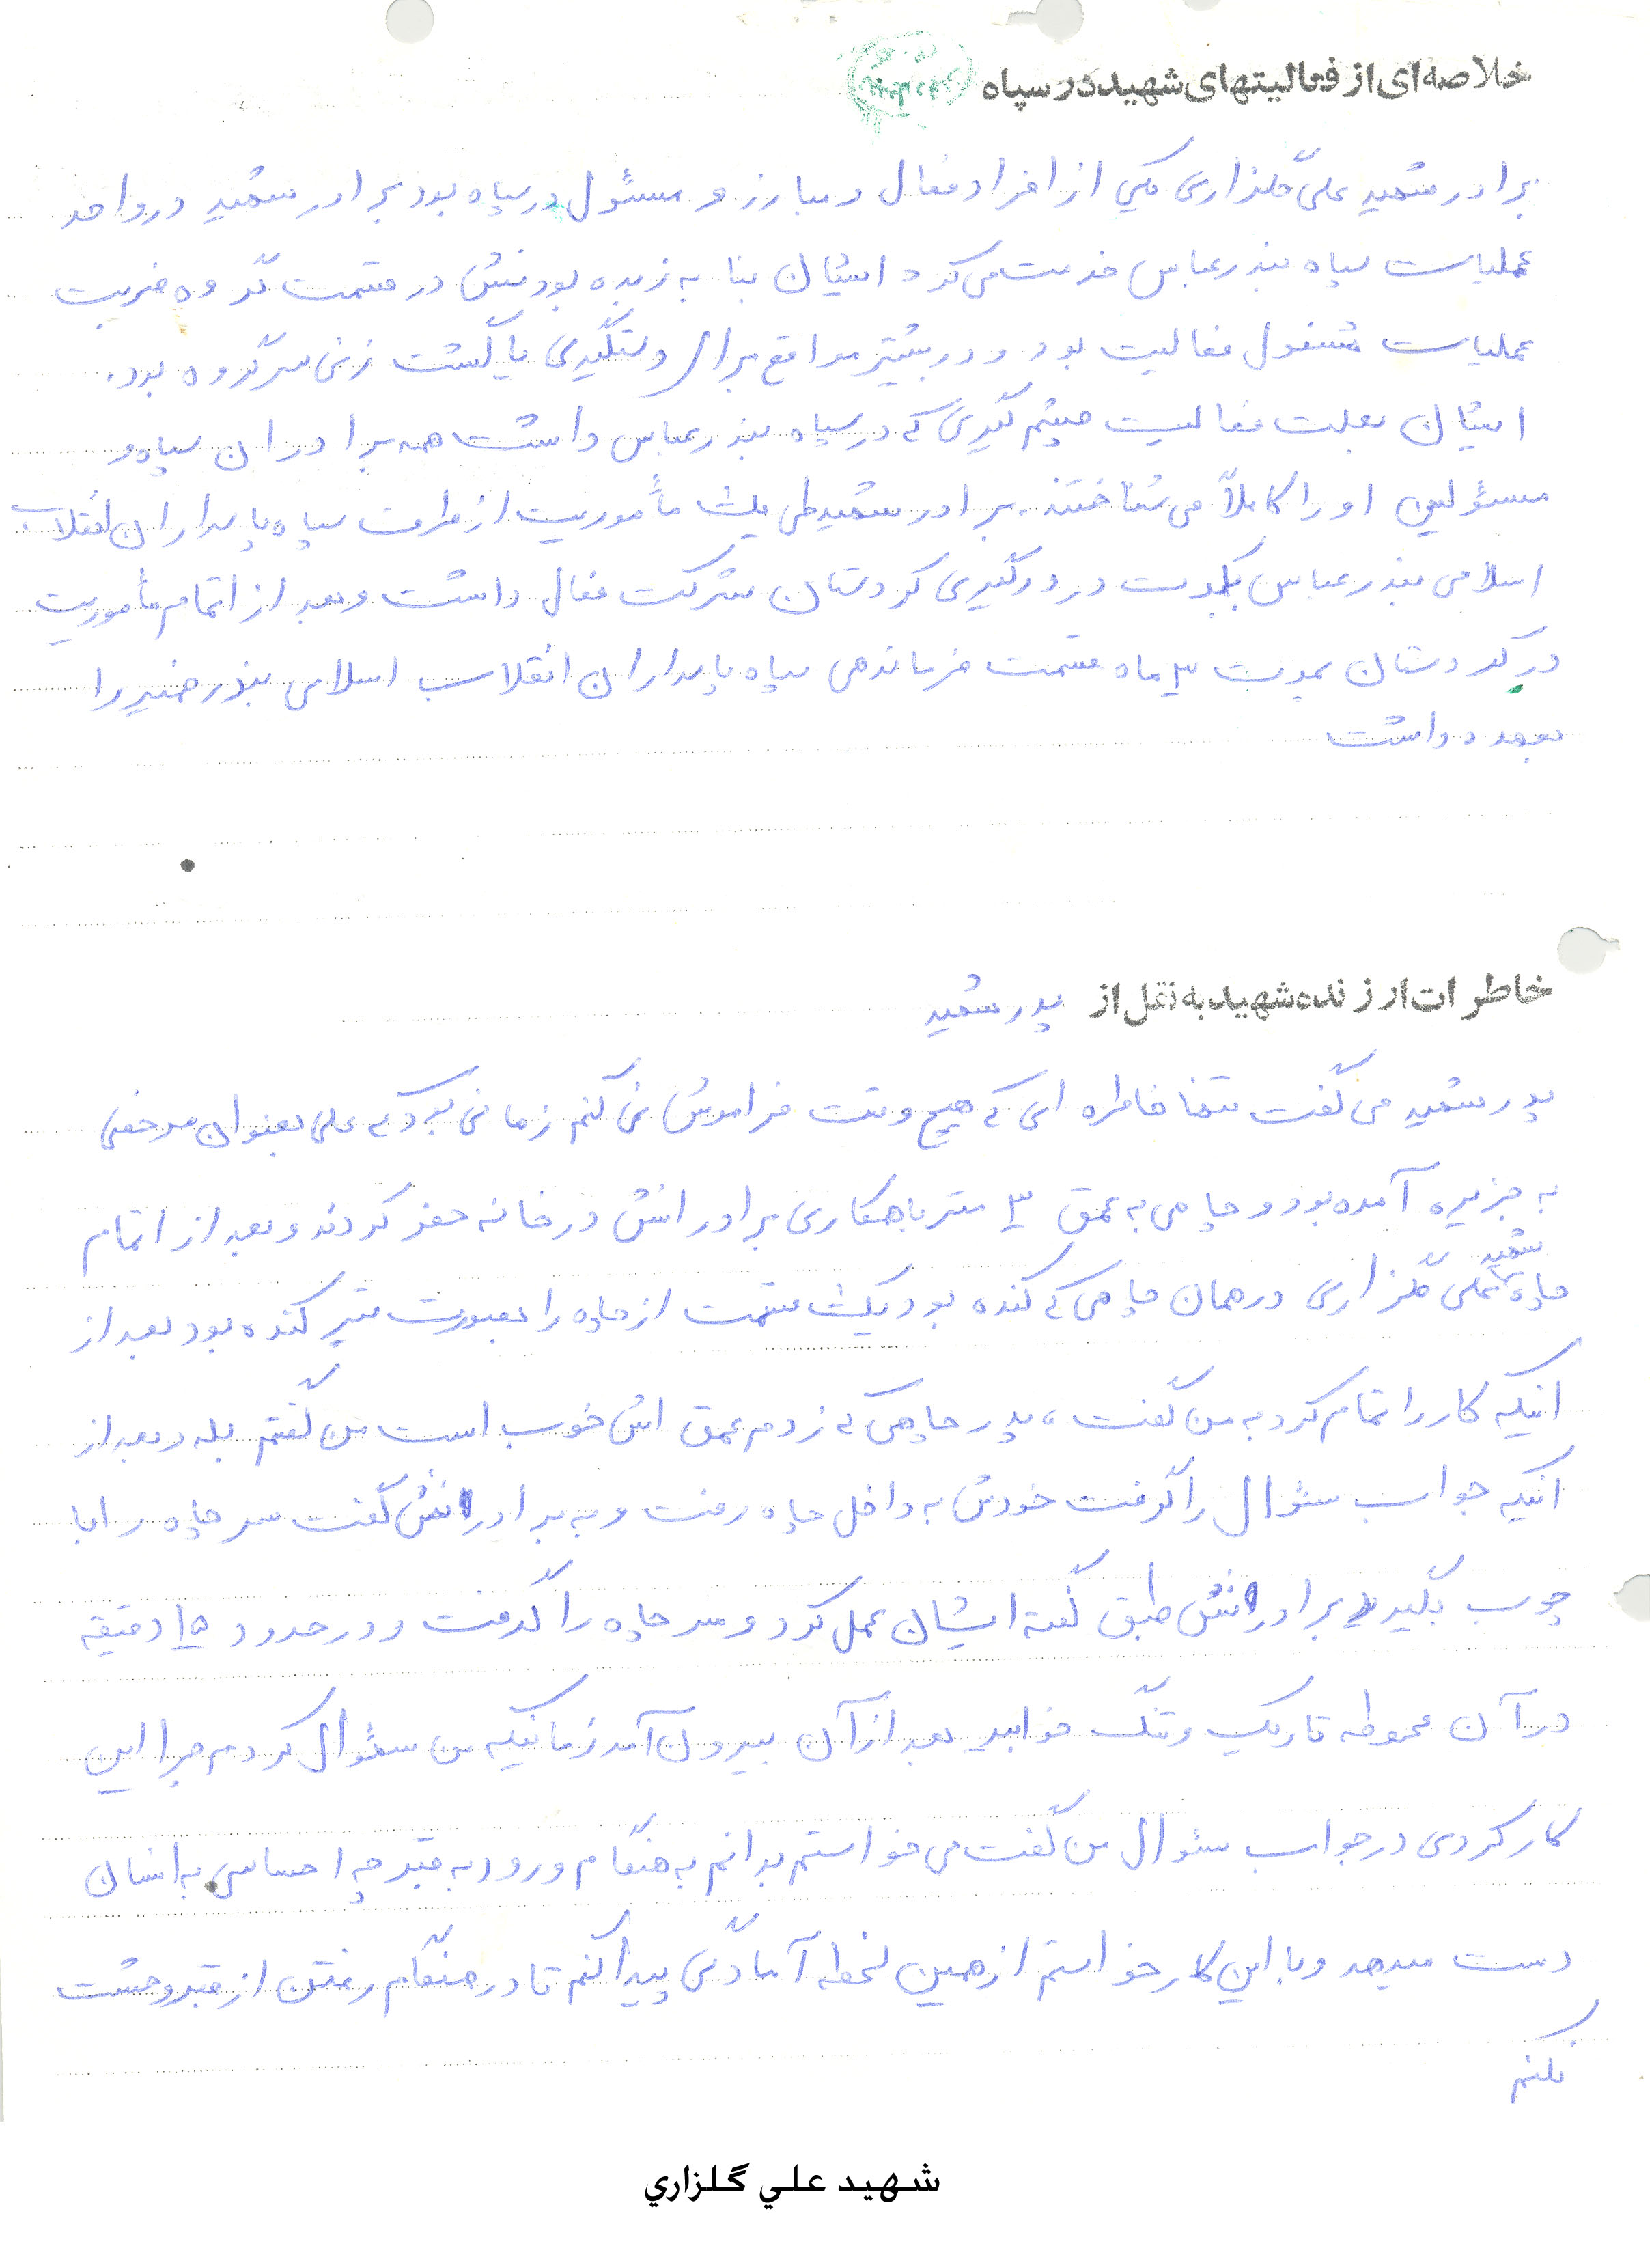 خلاصه‌ای از فعالیتهای شهید در سپاه
برادر شهید علی گلزاری یکی از افراد فعال و مبارز و مسئول در سپاه بود برادر شهید در واحد
عملیات سپاه بندرعباس خدمت می کرد ایشان بنا به زبده بودنش در قسمت گروه ضربت
عملیات مشغول فعالیت بود و در بیشتر مواقع برای دستگیری یا گشت زنی سرگروه بود.
ایشان بعلت فعالیت چشم گیری که در سپاه بندرعباس داشت همه برادران سپاه و
مسئولین او را کاملاً می شناختند. برادر شهید طی یک مأموریت از طرف سپاه پاسداران انقلاب
اسلامی بندرعباس بکمک در درگیری کردستان شرکت فعال داشت و بعد از اتمام مأموریت
در کردستان بمدت ۳ ماه قسمت فرماندهی سپاه پاسداران انقلاب اسلامی بندر خمیر را
بعهده داشت
خاطرات ارزنده شهید به نقل از پدر شهید
پدر شهید می گفت تنها خاطره ای که هیچ وقت فراموش نمی کنم زمانی بود که علی بعنوان مرخصی
به جزیره آمده بود و چاهی به عمق ۳ متر با همکاری برادرانش در خانه حفر کردند و بعد از اتمام
چاه شهید علی گلزاری در همان چاهی که کنده بود یک قسمت از چاه را بصورت قبر کنده بود بعد از
اینکه کار را تمام کرد به من گفت، پدر چاهی که زدم عمق اش خوب است من گفتم بله و بعد از
اینکه جواب سئوال را گرفت خودش به داخل چاه رفت و به برادرانش گفت سر چاه را با
چوب بگیرید برادرانش طبق گفته ایشان عمل کرد و سر چاه را گرفت و در حدود ۱۵ دقیقه
در آن محوطه تاریک و تنگ خوابید بعد از آن بیرون آمد زمانیکه من سئوال کردم چرا این
کار کردی در جواب سئوال من گفت می خواستم بدانم به هنگام ورود به قبر چه احساسی به انسان
دست میدهد و با این کار خواستم از همین لحظه آمادگی پیدا کنم تا در هنگام رفتن از قبر وحشت
نکنم
شهيد علي گلزاري